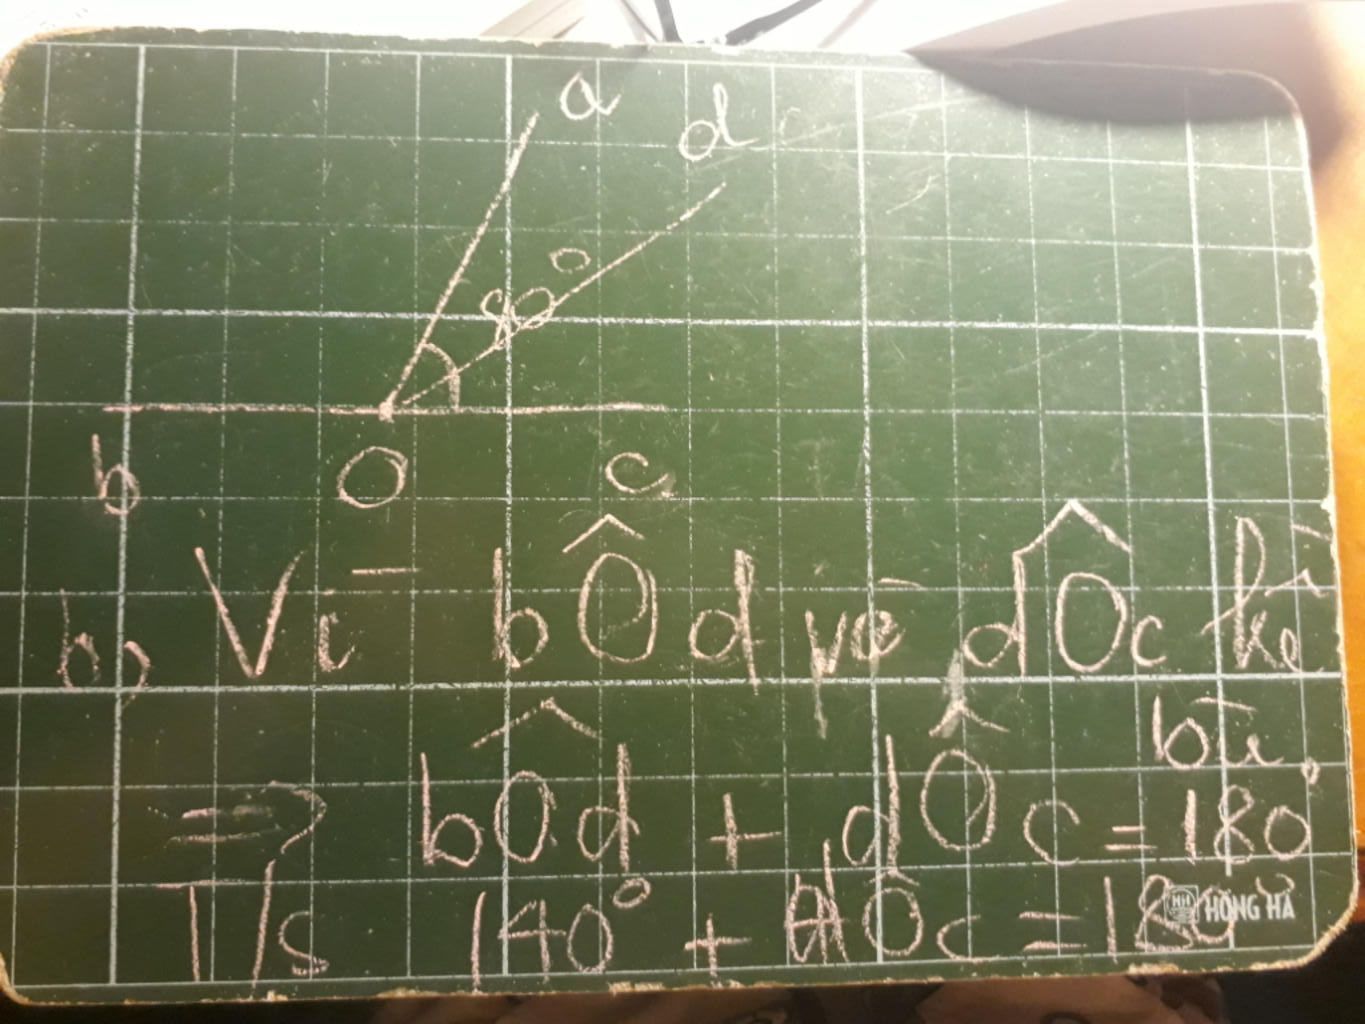 a
d
80°
b O c
b, Vì bÔd và dÔc kề
bù.
=> bÔd + dÔc = 180°
T/s 140° + dÔc = 180°
HH HỒNG HÀ